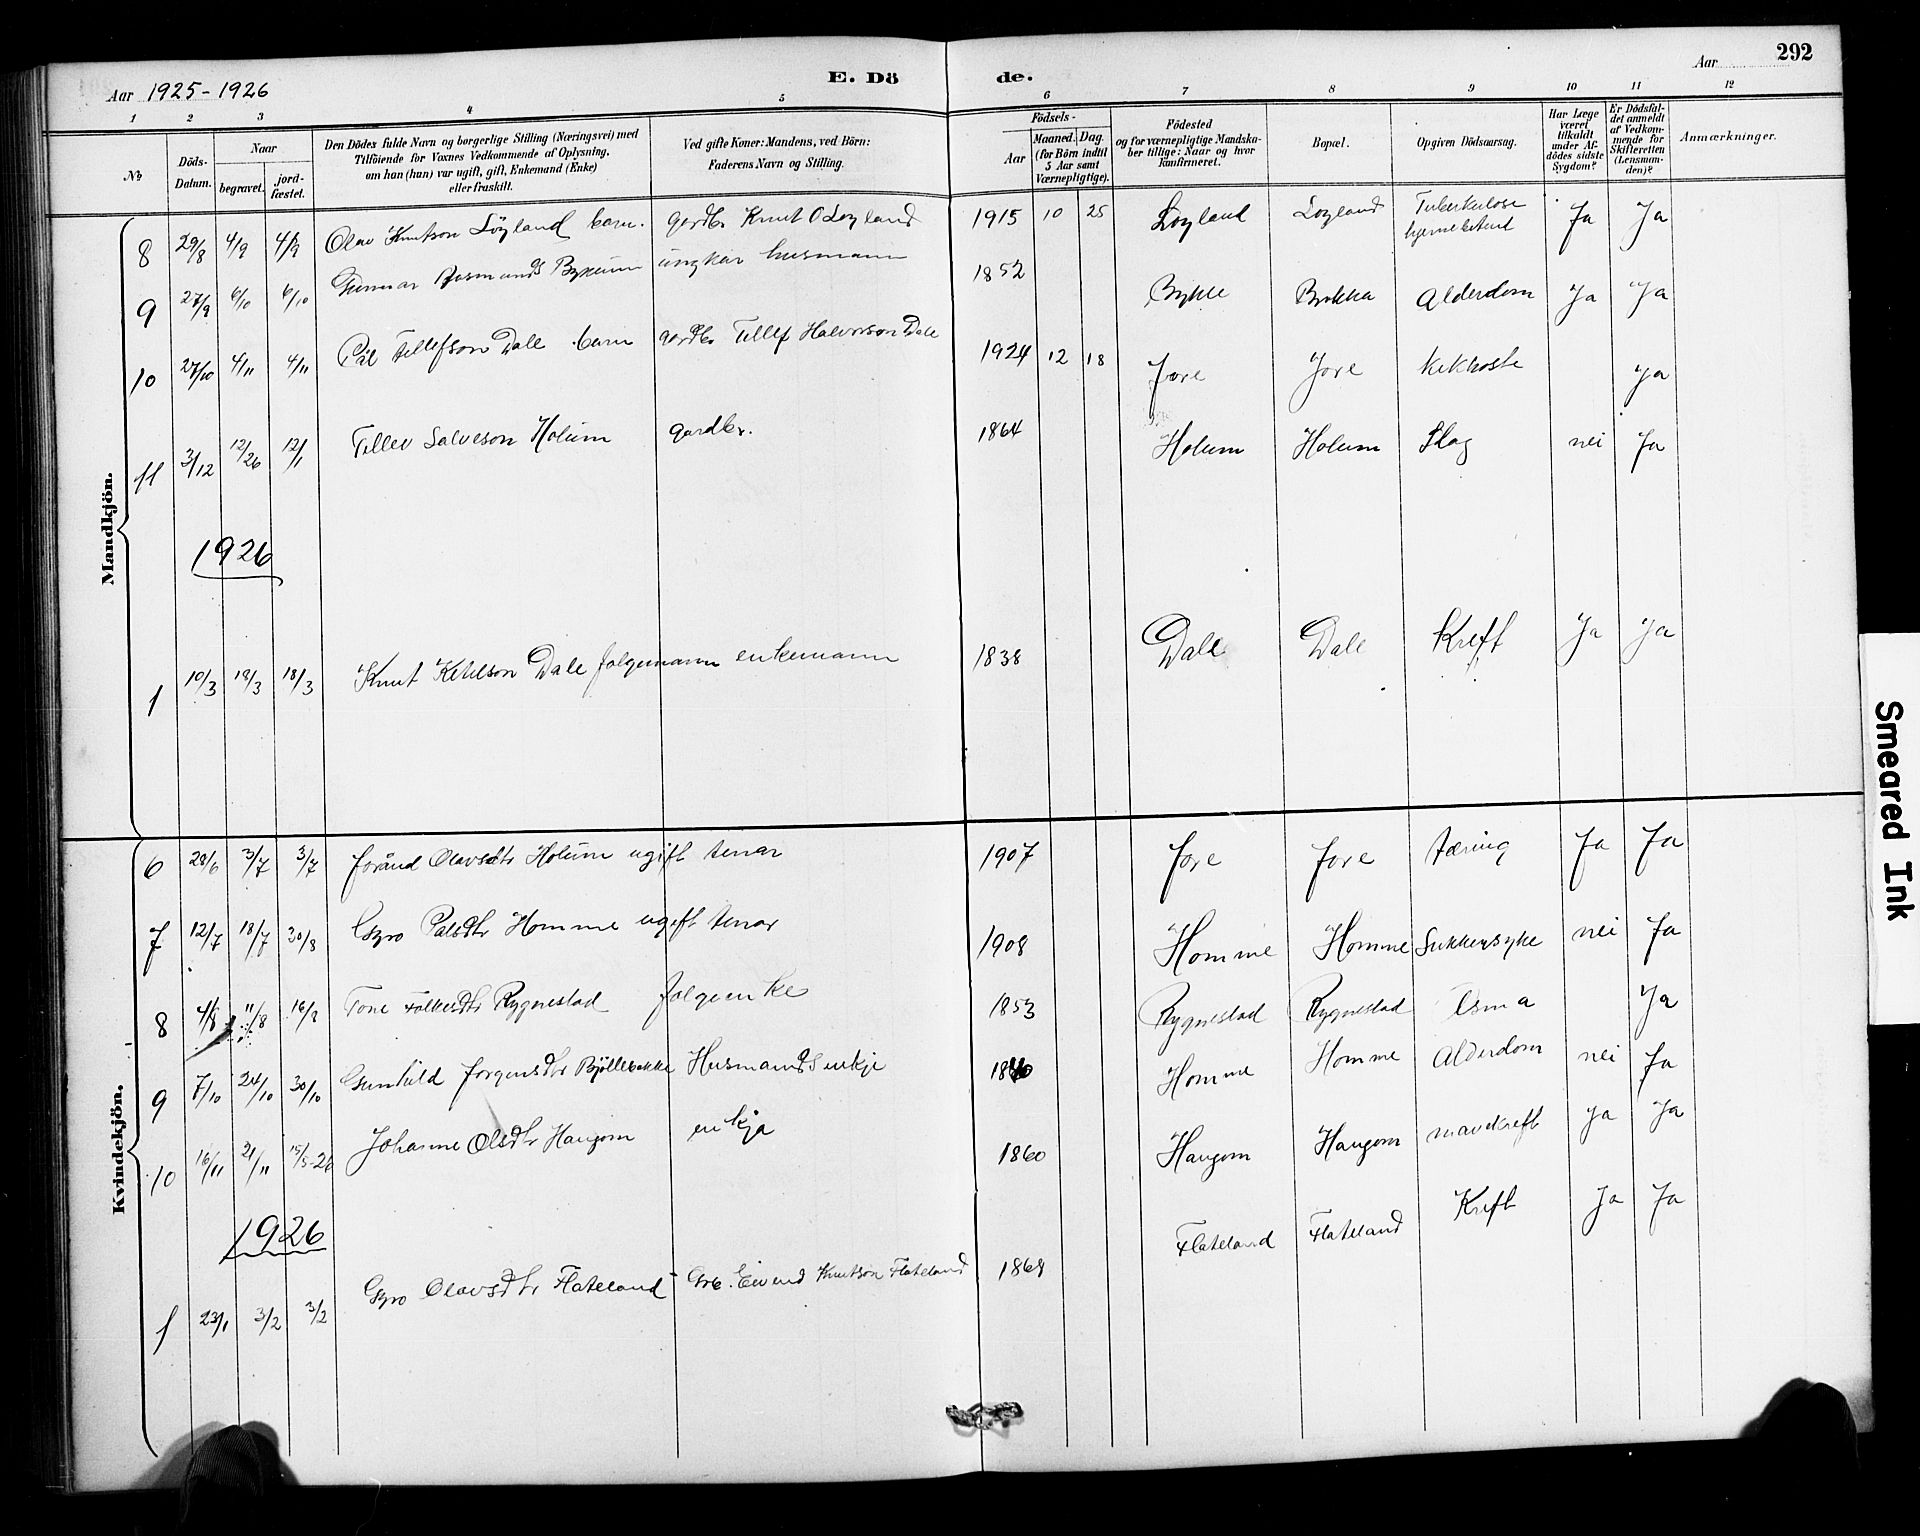 292
Aar 1925-1926
E. Dö
de.
Aar
1 2 3 4 5 6 7 8 9 10 11 12
No
Döds-Datum.
Naar
begravet.
jord-fæstet.
Den Dödes fulde Navn og borgerlige Stilling (Næringsvei) med
Tilföiende for Voxnes Vedkommende af Oplysning,
om han (hun) var ugift, gift, Enkemand (Enke)
eller fraskilt.
Ved gifte Koner: Mandens, ved Börn:
Faderens Navn og Stilling.
Födsels-
Aar
Maaned. Dag.
(for Börn indtil
5 Aar samt
Værnepligtige).
Födested
og for værnepligtige Mandska-
ber tillige: Naar og hvor
konfirmeret.
Bopæl.
Opgiven Dödsaarsag.
Har Læge
været
tilkaldt
under Af-
dödes sidste
Sygdom?
Er Dödsfal-
det anmeldt
af Vedkom-
mende for
Skifteretten
(Lensman-
den)?
Anmærkninger.
Mandkjön.
8 29/8 4/9 4/9 Olav Knutson Löyland barn. gardbr Knut O Loyland 1915 10 25 Loyland Loyland Tuberkulose Ja Ja
9 27/9 6/10 6/10 Gunnar ungkar husmann 1852 Bykle Alderdom Ja Ja
10 27/10 4/11 4/11 Pål Tellefson Dale barn gardbr Tellef Halvorson Dale 1924 12 18 Jore Jore kikhoste Ja
11 3/12 12/26 12/1 Tellev Salveson Holum gardbr. 1864 Holum Holum Slag nei Ja
1926
1 10/3 18/3 18/3 Knut Ketilson Dale folgemann enkemann 1838 Dale Dale Kreft Ja Ja
Kvindekjön.
6 28/6 3/7 3/7 Joránd Olavsdtr Holum ugift tenar 1907 Jore Jore tæring Ja Ja
7 12/7 18/7 30/8 Gyro Palsdtr Homme ugift tenar 1908 Homme Homme Sukkersyke nei Ja
8 4/8 11/8 16/8 Tone Folkesdtr Rygnestad folgeenke 1853 Rygnestad Rygnestad Asma Ja
9 7/10 24/10 30/10 Gunhild Jorgensdtr Bjöllebakke Husmands enkje Homme Homme Alderdom nei Ja
10 16/11 21/11 15/5-26 Johanne Olsdtr Haugom enkja 1860 Haugom Haugom mavekreft Ja Ja
1926
1 23/1 3/2 3/2 Gyro Olavsdtr Flateland Eivend Knutson Flateland 1868 Flateland Flateland Kreft Ja Ja
Smeared Ink